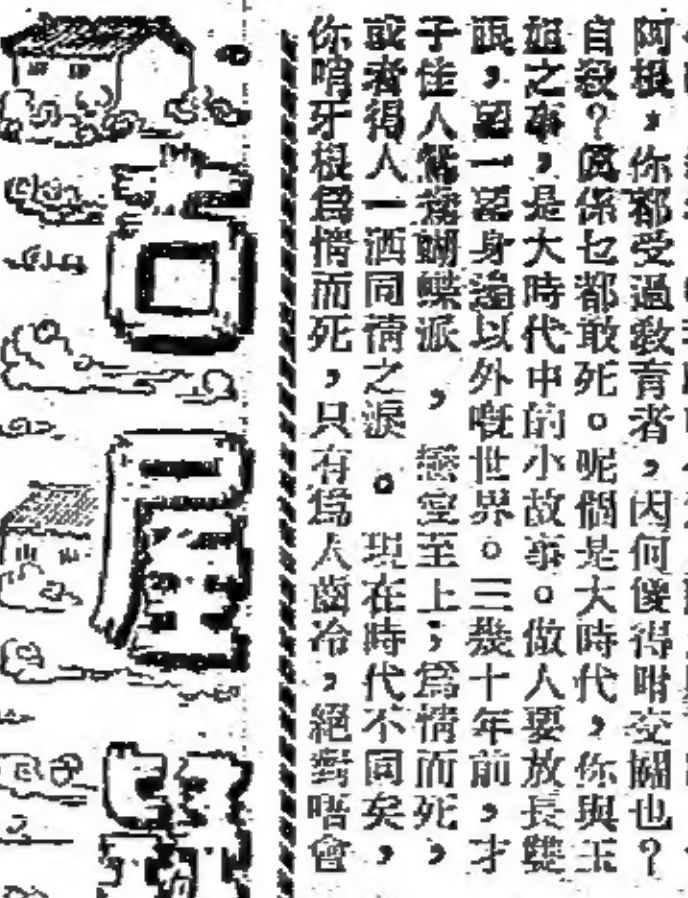 阿根，你都受過教育者，因何傻得咁交關也？
自殺？係乜都敢死。呢個是大時代，你與玉
姐之事，是大時代中的小故事。做人要放長雙
眼，望一望身邊以外嘅世界。三幾十年前，才
子佳人鴛鴦蝴蝶派，戀愛至上；為情而死，
或者得人一洒同情之淚。現在時代不同矣，
你哨牙根為情而死，只有為人齒冷，絕對唔會